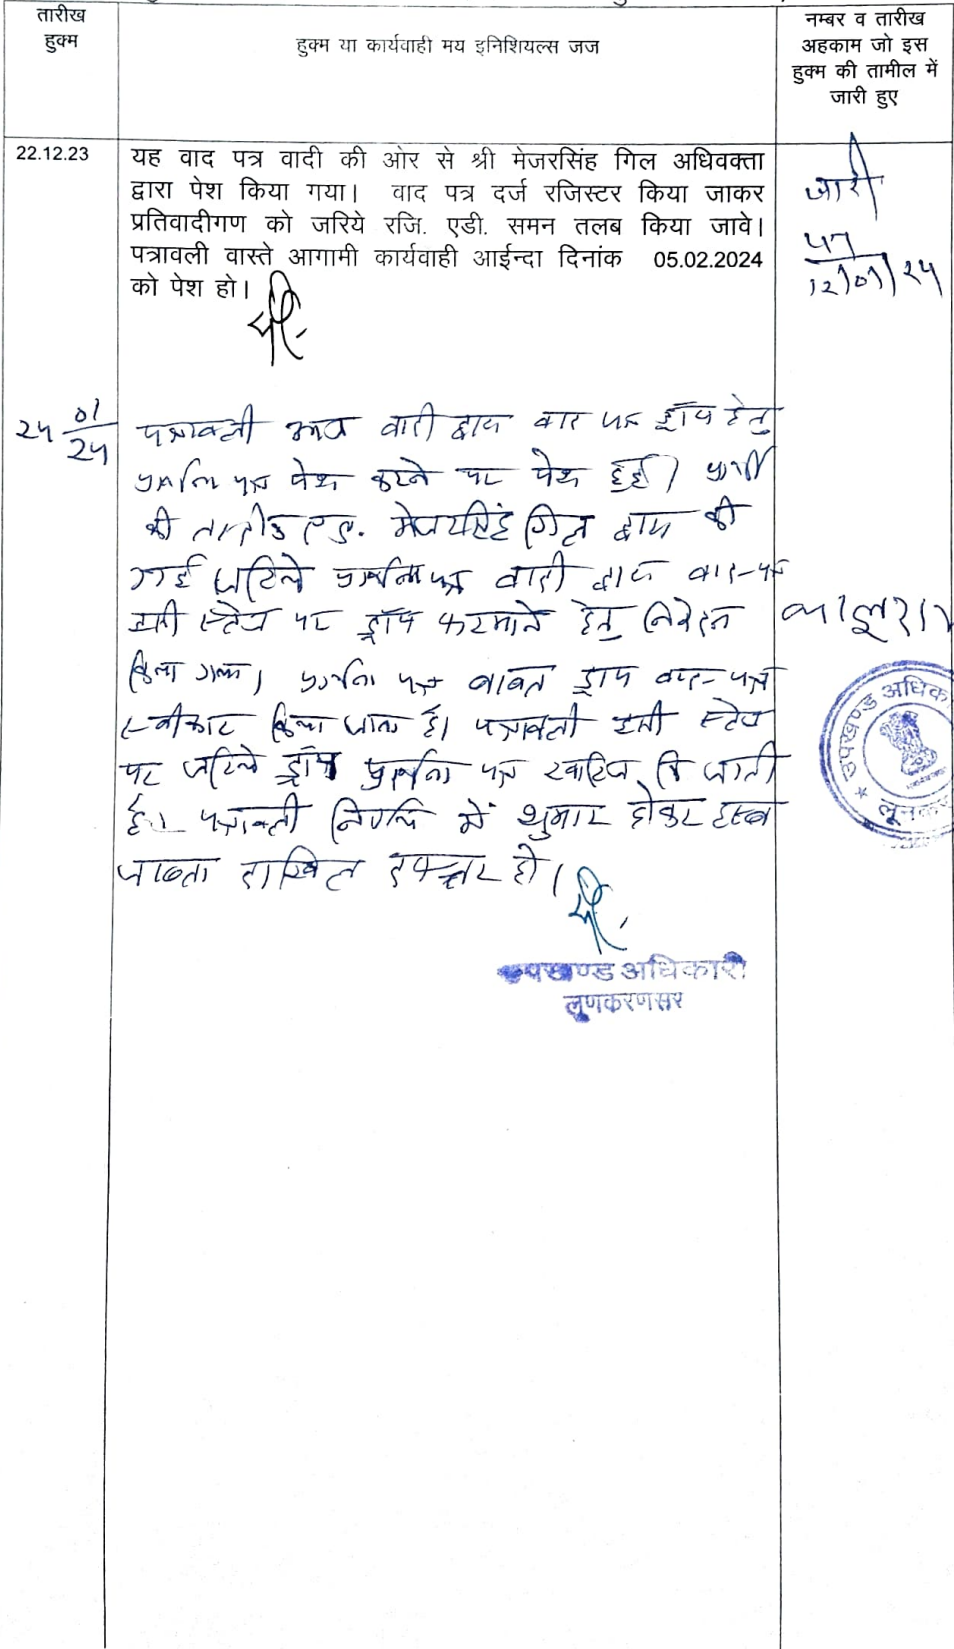 तारीख
हुक्म
हुक्म या कार्यवाही मय इनिशियल्स जज
नम्बर व तारीख
अहकाम जो इस
हुक्म की तामील में
जारी हुए
22.12.23
यह वाद पत्र वादी की ओर से श्री मेजरसिंह गिल अधिवक्ता
द्वारा पेश किया गया। वाद पत्र दर्ज रजिस्टर किया जाकर
प्रतिवादीगण को जरिये रजि. एडी. समन तलब किया जावे।
पत्रावली वास्ते आगामी कार्यवाही आईन्दा दिनांक 05.02.2024
को पेश हो।
जारी
12/01/24
24 01/24
पत्रावली आज वादी द्वारा वाद पत्र ड्रॉप हेतु
प्रार्थना पत्र पेश करने पर पेश हुई। प्रार्थी
की एड. मेजरसिंह गिल द्वारा की
गई जरिये प्रार्थना पत्र वादी द्वारा वाद-पत्र
इसी स्टेज पर ड्रॉप फरमाने हेतु निवेदन
किया गया। प्रार्थना पत्र बाबत ड्राप वाद-पत्र
स्वीकार किया जाता है। पत्रावली इसी स्टेज
पर जरिये ड्रॉप प्रार्थना पत्र खारिज कि जाती
है। पत्रावली निर्णय में शुमार होकर हस्ब
जाब्ता दाखिल दफ्तर हो।
उपखण्ड अधिकारी
लूणकरणसर
उपखण्ड अधिक
लूनकर